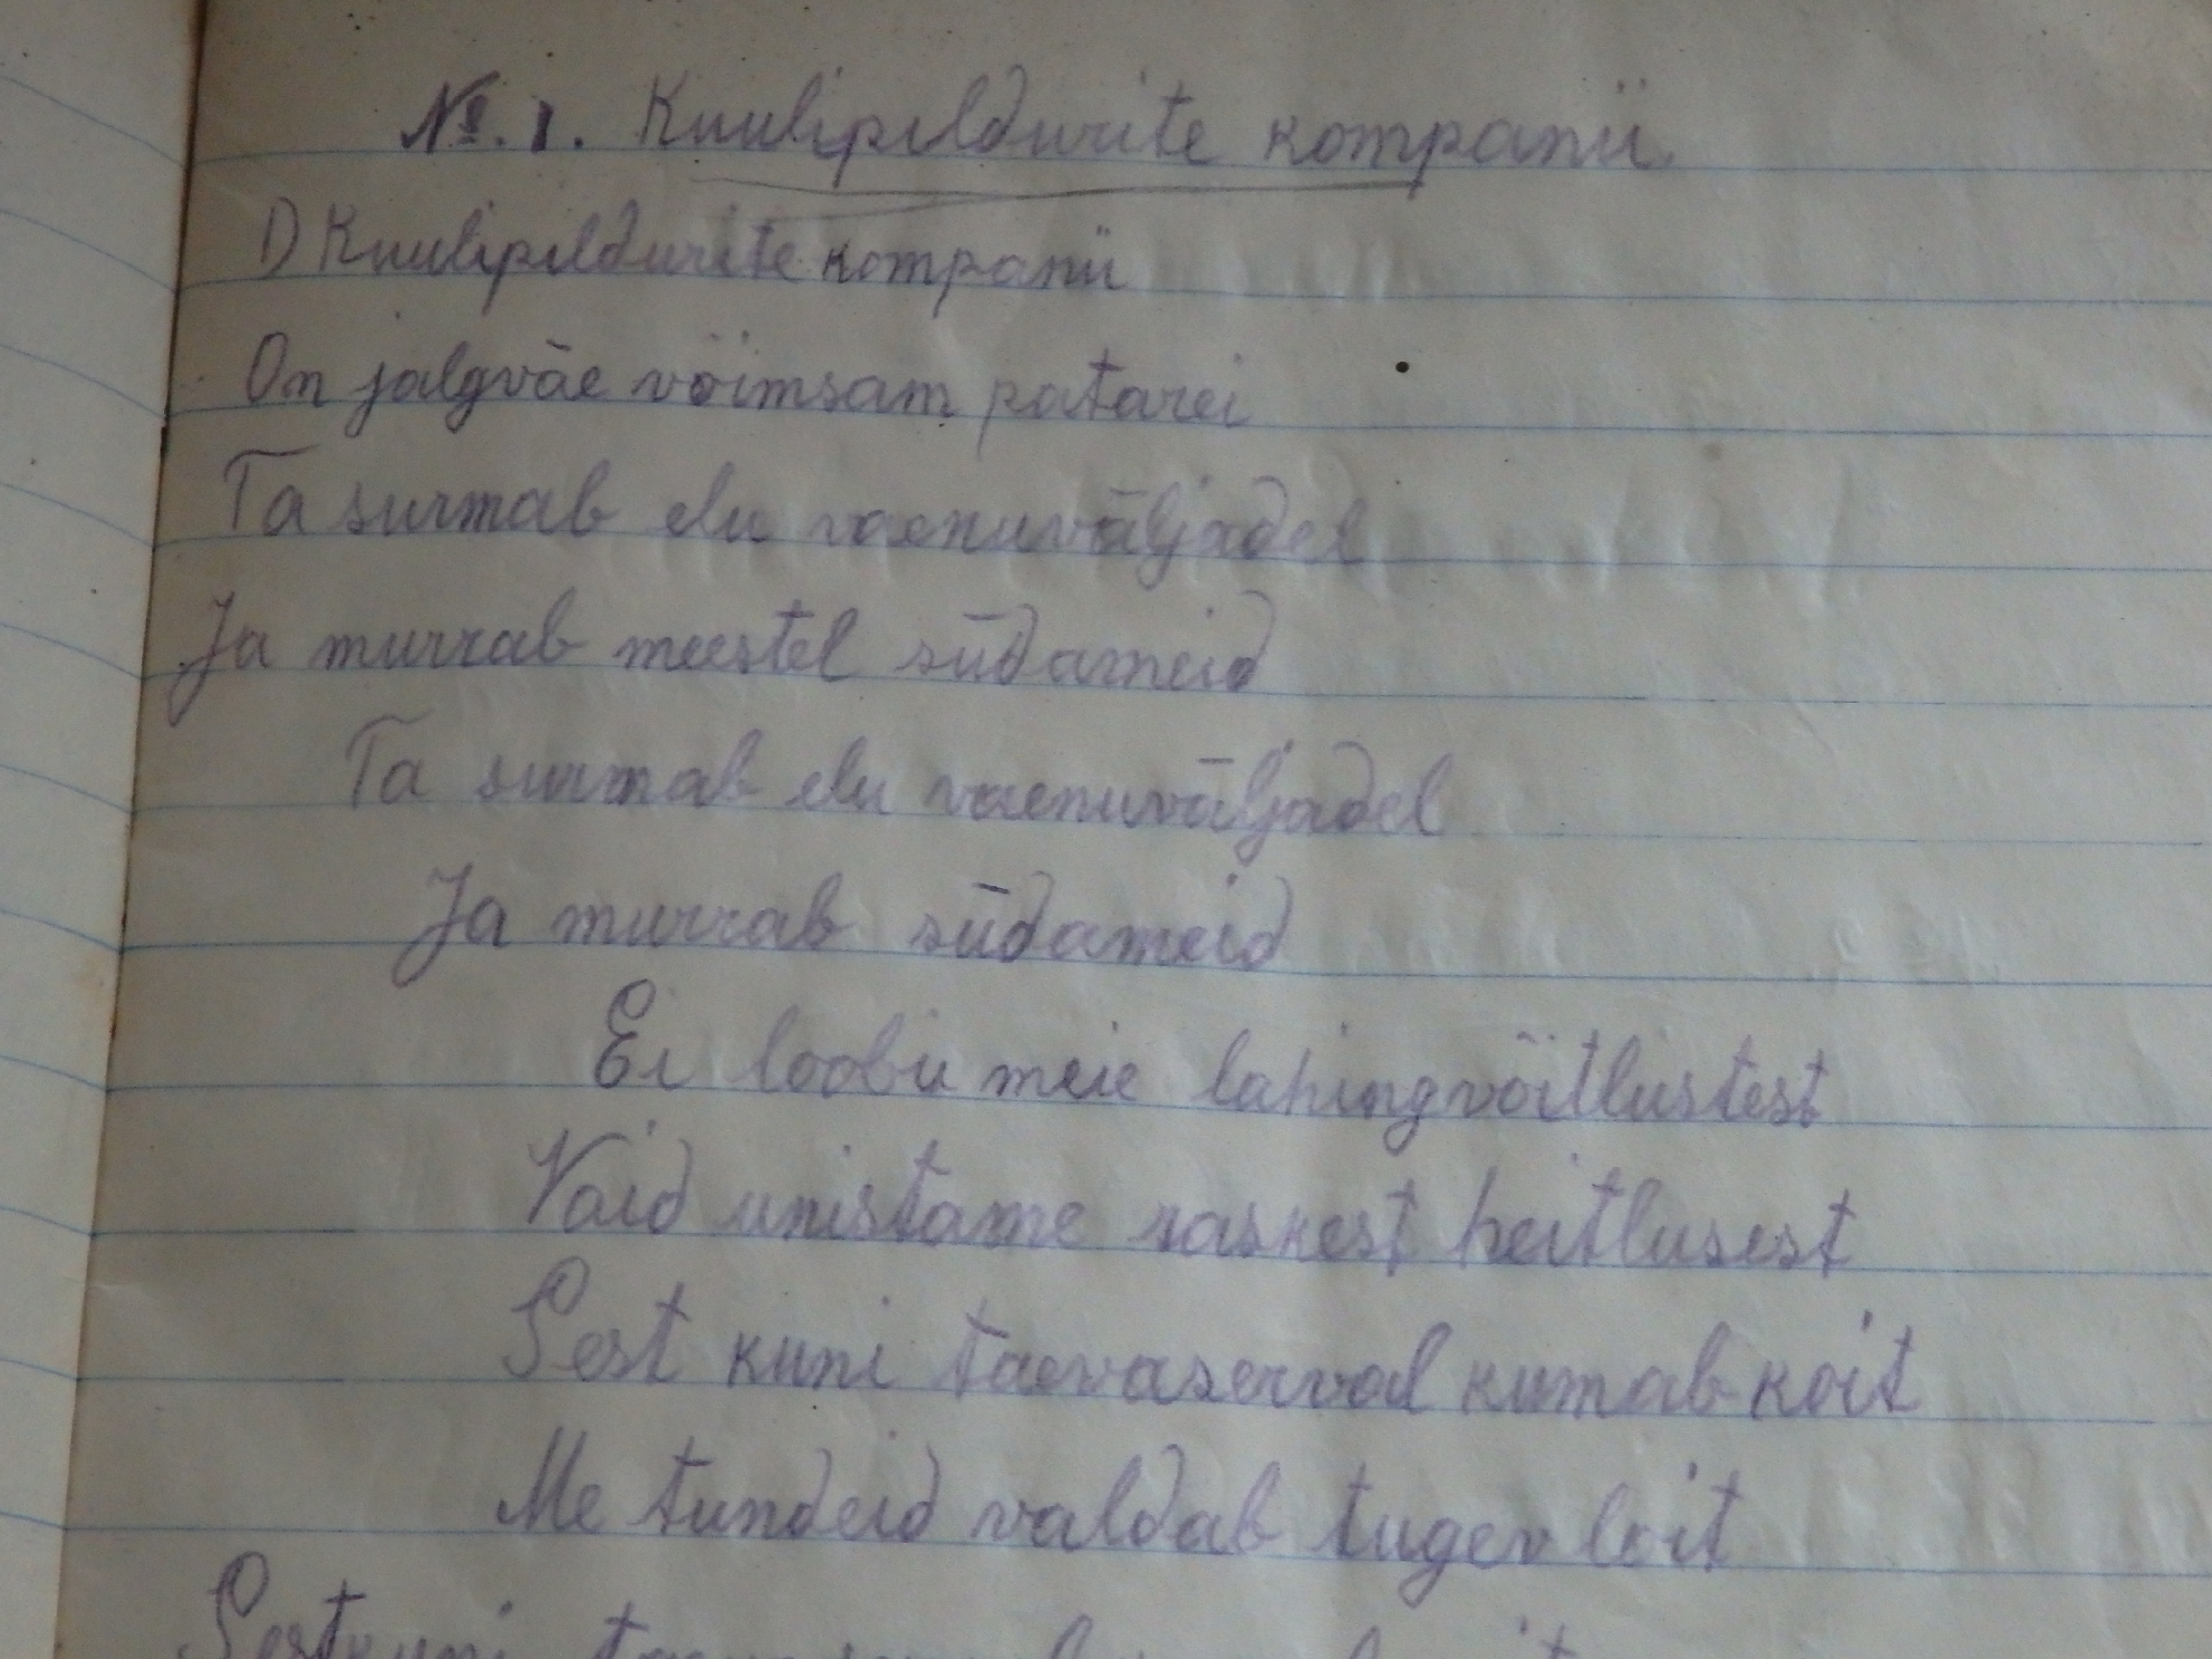 №. 1. Kuulipildurite kompanii
1) Kuulipildurite kompanii
On jalgväe võimsam patarei
Ta surmab elu vaenuväljadel
Ja murrab meestel südameid
Ta surmab elu vaenuväljadel
Ja murrab südameid
Ei loobu meie lahingvõitlustest
Vaid unistame raskest heitlusest
Sest kuni taevaserval kumab koit
Me tundeid valdab tugev loit
Sest kuni